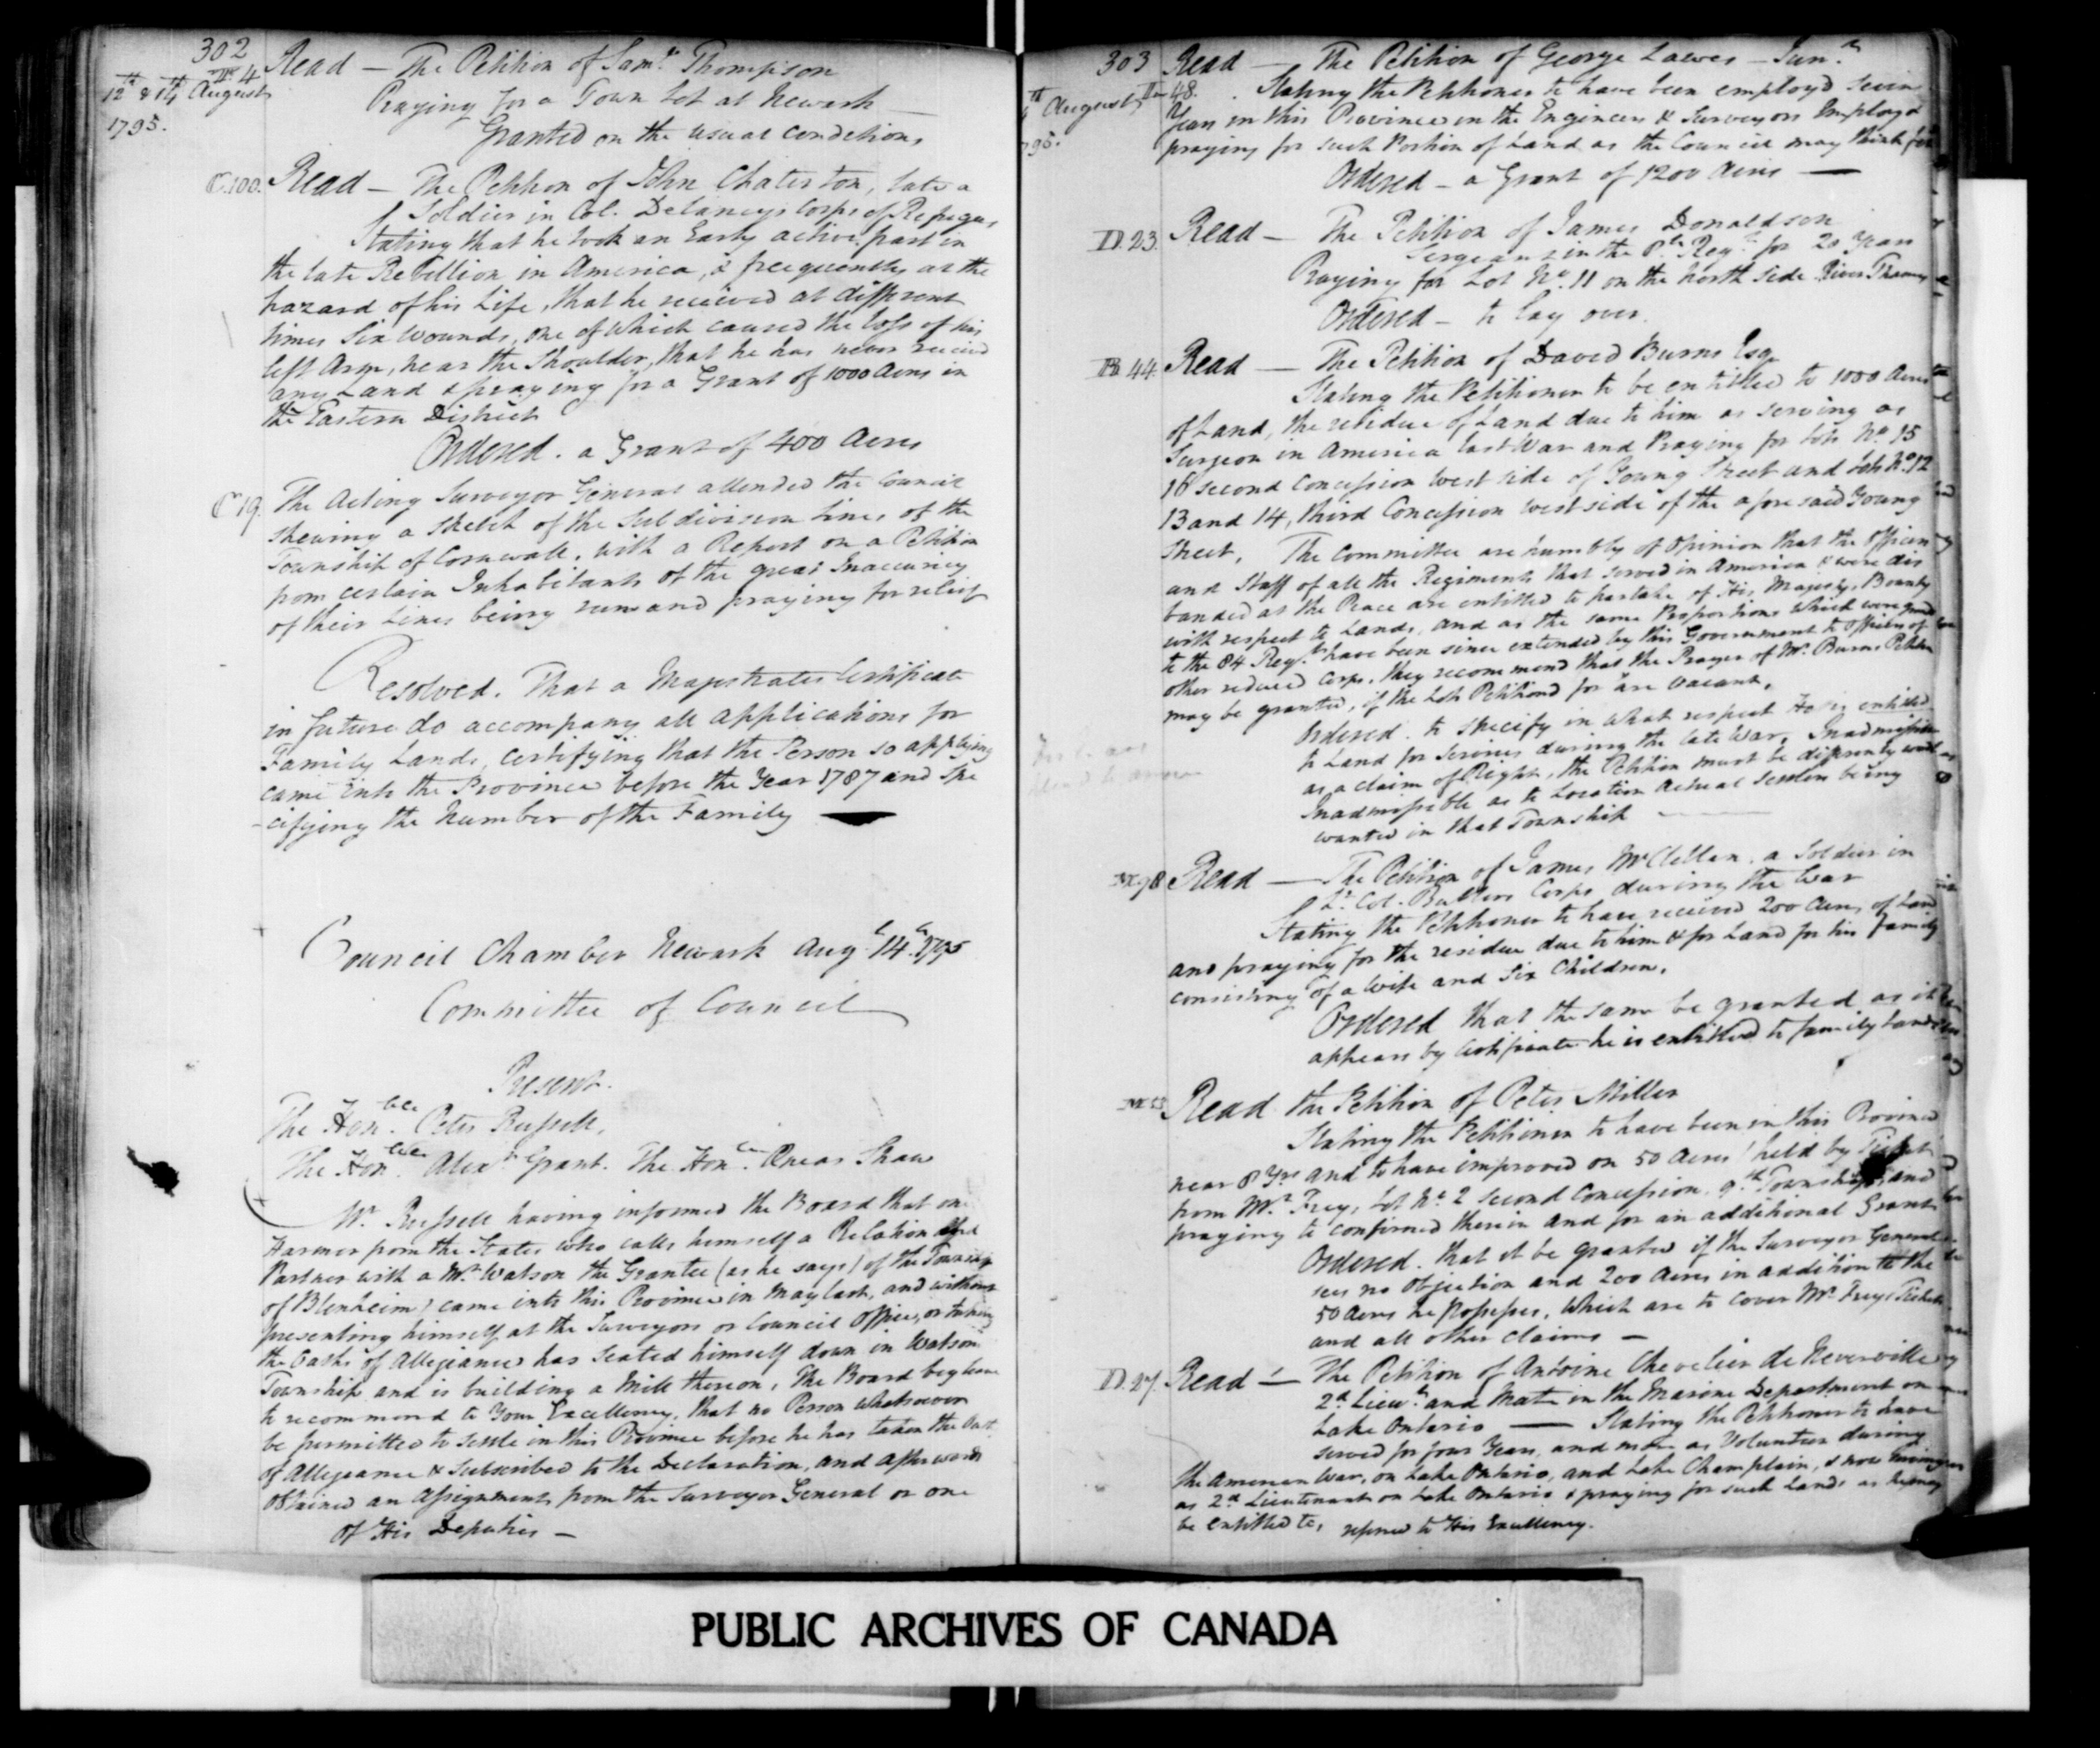 302
T. 4
12th & 14th August
1795.
Read — The Petition of Saml. Thompson
Praying for a Town Lot at Newark —
Granted on the usual conditions
C. 100. Read — The Petition of John Chaterton, late a
Soldier in Col. Delanceys Corps of Refugees,
Stating that he took an Early active part in
the late Rebellion in America, & frequently at the
hazard of his Life, that he received at different
times Six Wounds, one of which caused the loss of his
left Arm, near the Shoulder, that he has never received
any Land & praying for a Grant of 1000 Acres in
the Eastern District
Ordered. a Grant of 400 Acres
C 19. The Acting Surveyor General attended the Council
shewing a sketch of the subdivision Lines of the
Township of Cornwall, with a Report on a Petition
from certain Inhabitants of the great Inaccuracy
of their Lines being run and praying for relief
Resolved. That a Magistrates Certificate
in future do accompany all applications for
Family Lands, certifying that the Person so applying
came into the Province before the Year 1787 and spe
-cifying the Number of the Family
Council Chamber Newark Augt. 14th. 1795
Committee of Council
Present.
The Honble. Peter Russell,
The Honble. Alexr. Grant. The Honble. Æneas Shaw
Mr Russell having informed the Board that one
Harmer from the States who calls himself a Relation and
Partner with a Mr Watson the Grantee (as he says) of the Township
of Blenheim) came into this Province in May last, and without
presenting himself at the Surveyors or Council Office, or taking
the Oaths of Allegiance has seated himself down in Watsons
Township and is building a Mill thereon, The Board beg leave
to recommend to Your Excellency, that no Person whatsoever
be permitted to settle in this Province before he has taken the Oath
of Allegiance & Subscribed to the Declaration, and afterwards
obtained an Assignment from the Surveyor General or one
of His Deputies —
303
August
95.
Read — The Petition of George Lawes — Junr.
L 48. Stating the Petitioner to have been employd seven
Years in this Province in the Engineers & Surveyors Employd
praying for such Portion of Land as the Council may think fit
Ordered — a Grant of 1200 Acres —
D. 23. Read — The Petition of James Donaldson
Sergeant in the 8th Regt. for 20 Years
Praying for Lot No. 11 on the North side River Thames
Ordered — to lay over.
B 44. Read — The Petition of David Burns Esqr
Stating the Petitioner to be entitled to 1000 Acres
of Land, the residue of Land due to him as serving as
Surgeon in America last War and Praying for Lots No 15
16 second Concession west side of Young Street and Lots No. 12
13 and 14, third Concession west side of the aforesaid Young
Street, The Committee are humbly of Opinion that the Officers
and Staff of all the Regiments that served in America & were dis
banded at the Peace are entitled to partake of His Majestys Bounty
with respect to Lands, and as the same Proportions which were granted
to the 84 Regt. have been since extended by this Government to Officers of
other reduced Corps, they recommend that the Prayer of Mr. Burns Petition
may be granted, if the Lots Petitiond for are vacant.
Ordered. to specify in what respect He is entitled
to Land for Services during the late War, Inadmissible
as a claim of Right, the Petition must be differently worded
Inadmissible as to Location actual settlers being
wanted in that Township —
M 98 Read — The Petition of James McClellan, a Soldier in
Lt. Col. Butlers Corps during the War
Stating the Petitioner to have received 200 Acres of Land
and praying for the residue due to him & for Land for his family
consisting of a Wife and Six Children.
Ordered that the same be granted as it
appears by Certificate he is entitled to family Lands
M Read the Petition of Peter Miller
Stating the Petitioner to have been in this Province
near 8 Yrs and to have improved on 50 Acres (held by Ticket
from Mr. Frey, Lot No. 2 second Concession 9th Township) and
praying to confirmed therein and for an additional Grant
Ordered. that it be granted if the Surveyor General
sees no objection and 200 Acres in addition to the
50 Acres he possesses, which are to cover Mr. Freys Ticket
and all other claims —
D. 27. Read — The Petition of Antoine Chevelier de Neverville
2d. Lieut. and Mate in the Marine Department on
Lake Ontario — Stating the Petitioner to have
served for four Years, and more as Volunteer during
the American War, on Lake Ontario, and Lake Champlain, & now serving
as 2d Lieutenant on Lake Ontario & praying for such Lands as he may
be entitled to, referred to His Excellency.
PUBLIC ARCHIVES OF CANADA